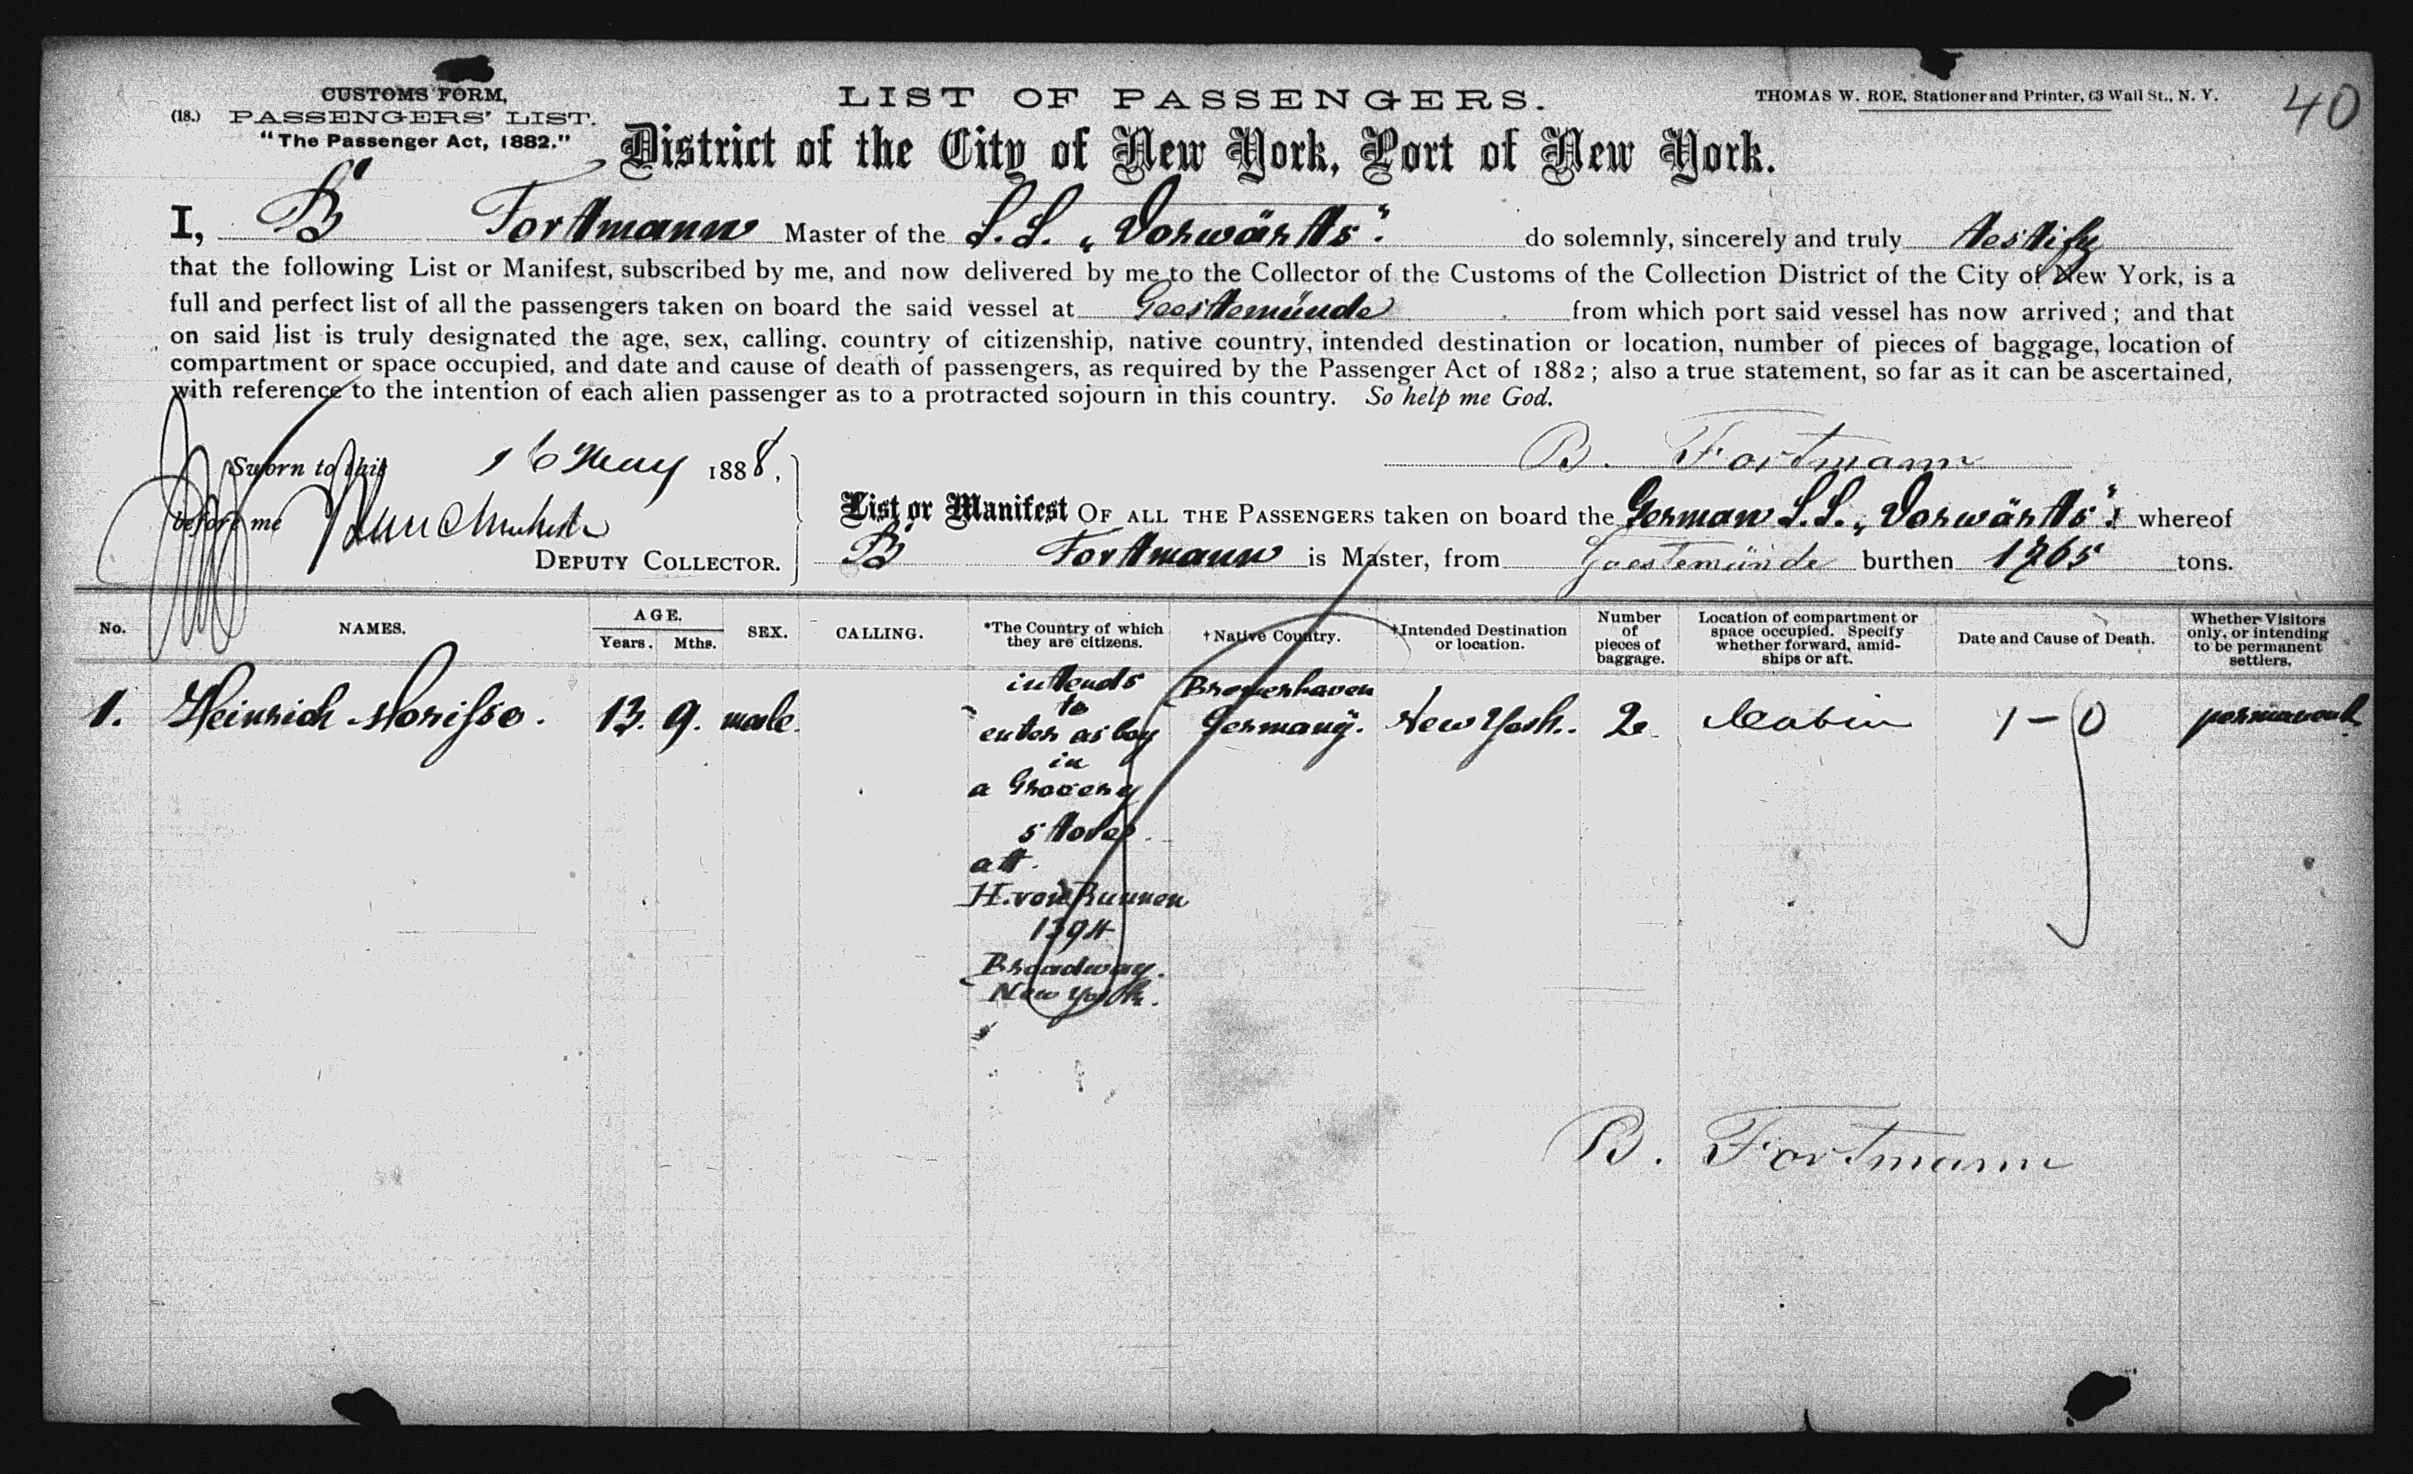 CUSTOMS FORM,
(18.) PASSENGERS' LIST.
"The Passenger Act, 1882."
LIST OF PASSENGERS.
THOMAS W. ROE, Stationer and Printer, 63 Wall St., N. Y.
40
District of the City of New York, Port of New York.
I, B Fortmann Master of the S.S. „Vorwärts". do solemnly, sincerely and truly testify
that the following List or Manifest, subscribed by me, and now delivered by me to the Collector of the Customs of the Collection District of the City of New York, is a
full and perfect list of all the passengers taken on board the said vessel at Geestemünde from which port said vessel has now arrived; and that
on said list is truly designated the age, sex, calling, country of citizenship, native country, intended destination or location, number of pieces of baggage, location of
compartment or space occupied, and date and cause of death of passengers, as required by the Passenger Act of 1882; also a true statement, so far as it can be ascertained,
with reference to the intention of each alien passenger as to a protracted sojourn in this country. So help me God.
Sworn to this 16 May 1888,
B. Fortmann
before me
DEPUTY COLLECTOR.
List or Manifest OF ALL THE PASSENGERS taken on board the German S.S. „Vorwärts". whereof
B Fortmann is Master, from Geestemünde burthen 1765 tons.
No. NAMES. AGE. Years. Mths. SEX. CALLING. *The Country of which they are citizens. †Native Country. †Intended Destination or location. Number of pieces of baggage. Location of compartment or space occupied. Specify whether forward, amidships or aft. Date and Cause of Death. Whether Visitors only, or intending to be permanent settlers.
1. Heinrich 13. 9. male. Bremerhaven Germany. New York. 2 Cabin 1-0 permanent
intends
to
enter as boy
in
a Grocery
store
att.
H. von
1394
Broadway.
New York.
B. Fortmann